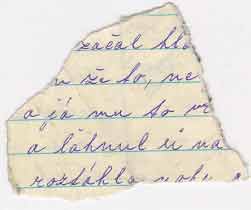 začal
že to, ne
a já mu to
a láhnul si na
roztáhla